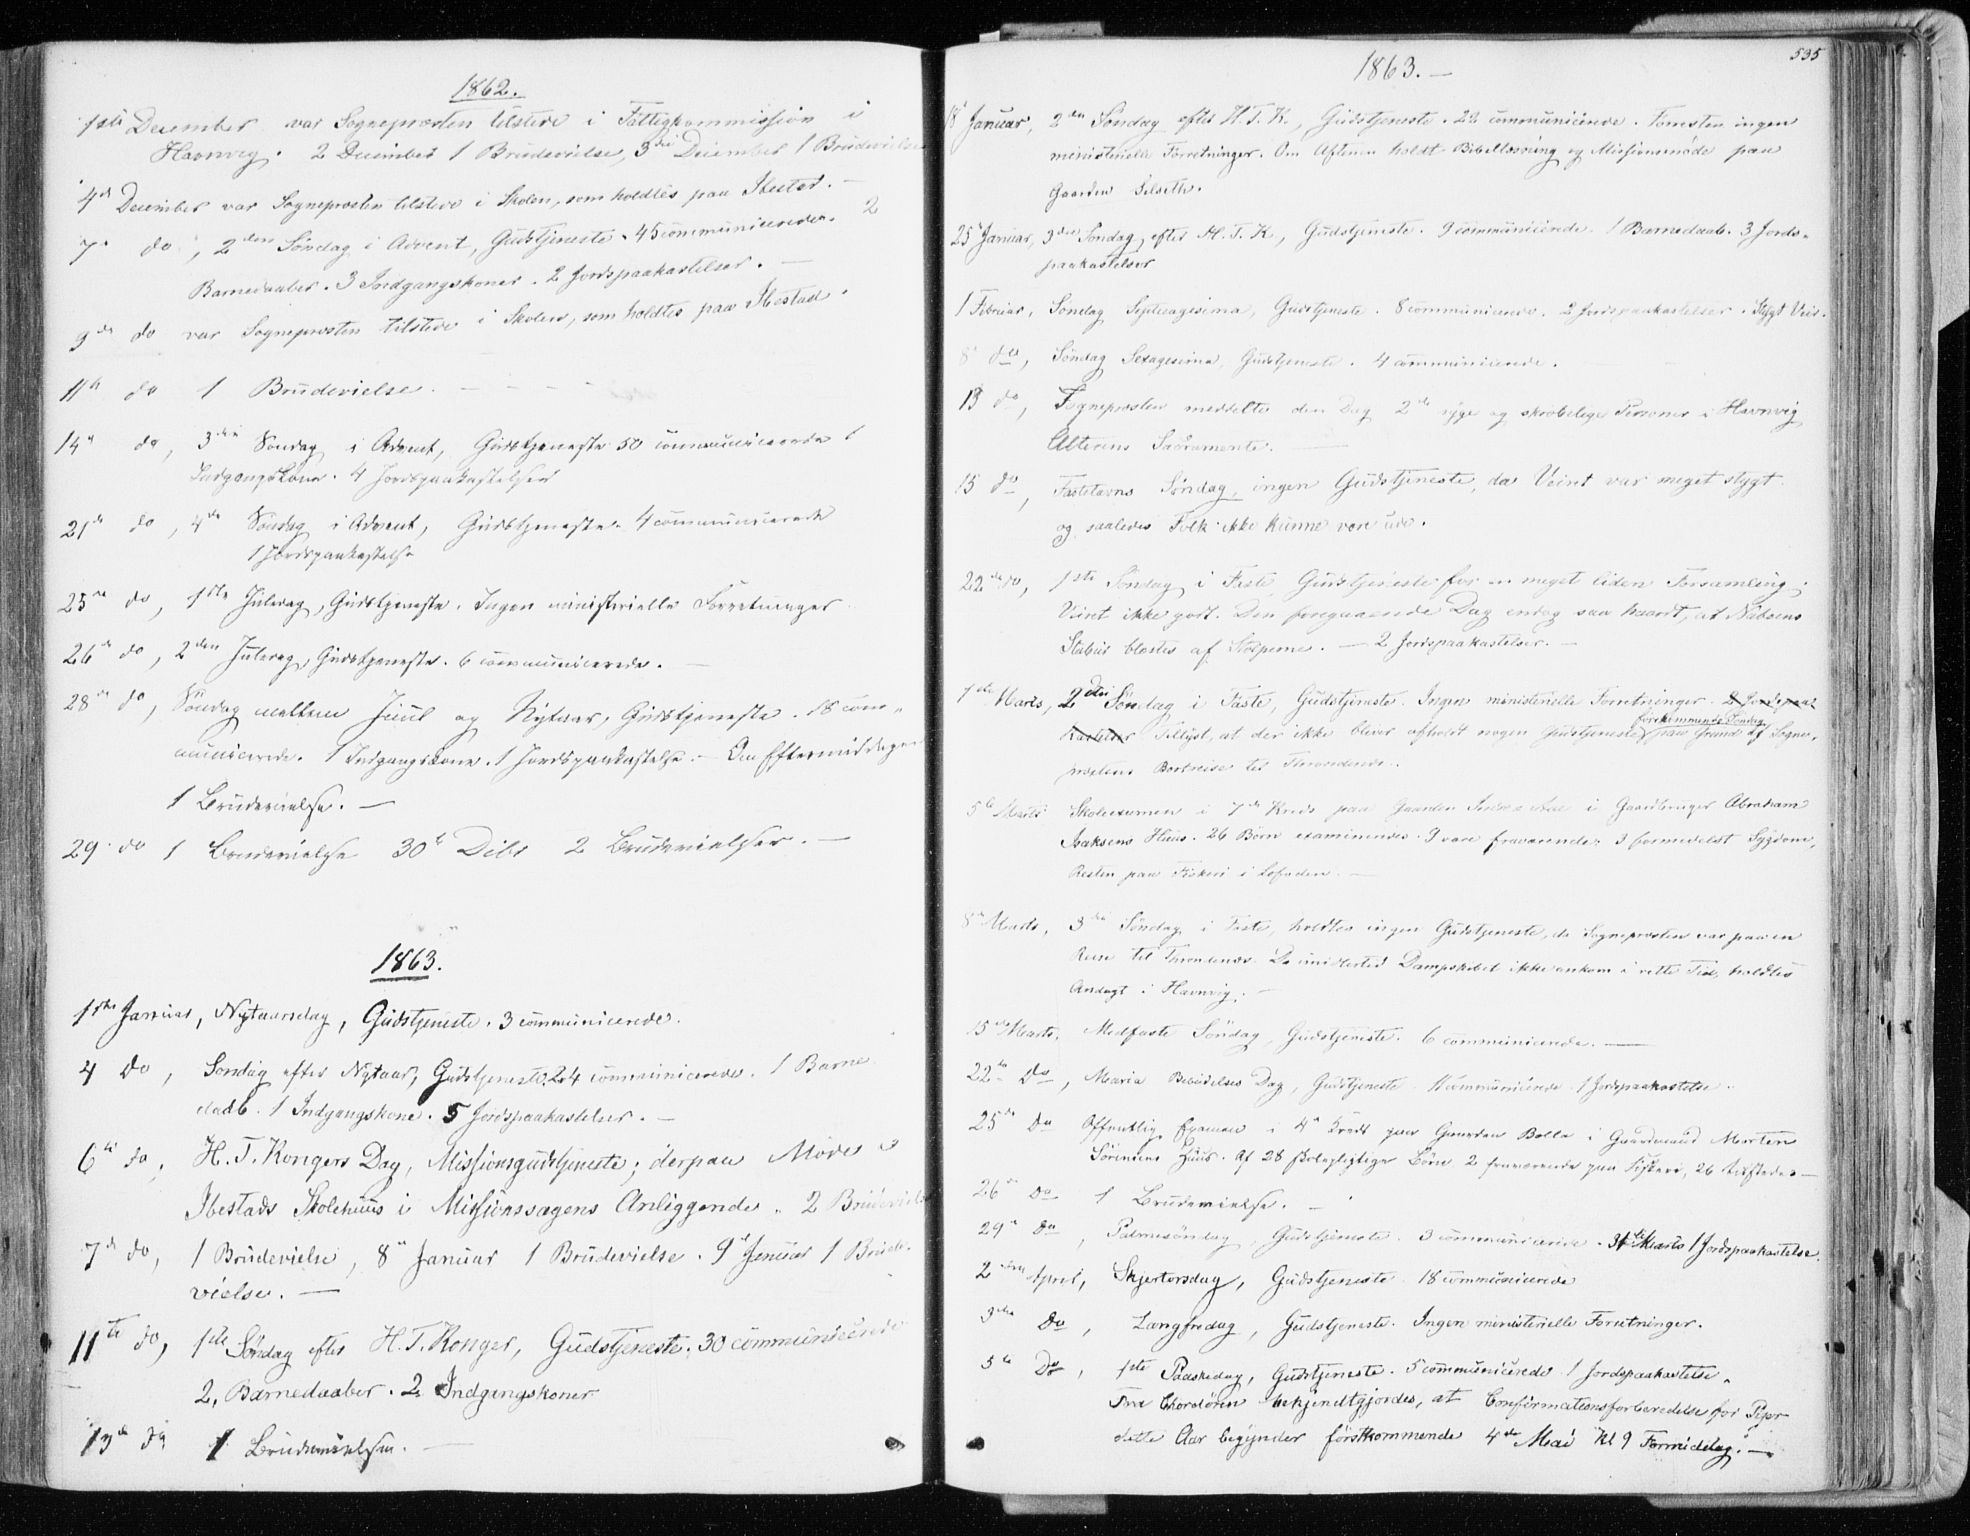 1862.
1ste December var Sognepræsten tilstede i Fattigkommission i
Havnvig. 2 December 1 Brudevielse, 3die December 1 Brudevielse
4de December var Sognepræsten tilstede i Skolen, som holdtes paa Ibestad. —
7de do, 2den Söndag i Advent, Gudstjeneste. 45 communicerede. 2
Barnedaaber. 3 Indgangskoner. 2 Jordspaakastelser. —
9de do var Sognepræsten tilstede i Skolen, som holdtes paa Ibestad.
11te do 1 Brudevielse.
14de do, 3die Söndag i Advent, Gudstjeneste 50 communicerede 1
Indgangskone. 4 Jordspaakastelser
21de do, 4de Söndag i Advent, Gudstjeneste. 4 communicerede
1 Jordspaakastelse
25de do, 1ste Juledag, Gudstjeneste. Ingen ministerielle Forretninger
26de do, 2den Juledag, Gudstjeneste. 6 communicerede. —
28de do, Söndag mellem Juul og Nytaar, Gudstjeneste. 18 com-
municerede. 1 Indgangskone. 1 Jordspaakastelse. — Om Eftermiddagen
1 Brudevielse. —
29. do 1 Brudevielse 30te Dibs 2 Brudevielser. —
1863.
1ste Januar, Nytaarsdag, Gudstjeneste. 3 communicerede.
4 do, Söndag efter Nytaar, Gudstjeneste. 24 communicerede. 1 Barne
daab. 1 Indgangskone. 5 Jordspaakastelser. —
6te do, H. T. Kongers Dag, Missionsgudstjeneste; derpaa Møde i
Ibestads Skolehuus i Missionssagens Anliggende. 2 Brudeviels
7de do, 1 Brudevielse, 8de Januar 1 Brudevielse. 9de Januar 1 Brude-
vielse. —
11te do, 1ste Søndag efter H. T. Konger, Gudstjeneste. 30 communicerede
2, Barnedaaber. 2 Indgangskoner
13de do 1 Brudevielse. —
535
1863. —
18 Januar, 2den Søndag efter H. T. K., Gudstjeneste. 22 communicerede. Forresten ingen
ministerielle Forretninger. Om Aftenen holdt Bibellæsning og Missionsmøde paa
Gaarden Selseth.
25 Januar, 3die Søndag efter H. T. K, Gudstjeneste. 9 communicerede. 1 Barnedaab. 3 Jords-
paakastelser
1 Februar, Søndag Septuagesima, Gudstjeneste. 8 communicerede. 2 Jordspaakastelser. Stygt Veir.
8de do, Söndag Sexagesima, Gudstjeneste. 4 communicerede.
13 do, Sognepræsten meddelte den Dag 2de syge og skrøbelige Personer i Havnvig
Alterens Sacramente. —
15 do, Fastelavns Søndag, ingen Gudstjeneste, da Veiret var meget stygt
og saaledes Folk ikke kunne være ude.
22de do, 1ste Søndag i Faste, Gudstjeneste for en meget liden Forsamling;
Veiret ikke godt. Den foregaaende Dag saa haardt, at
Stabur blæstes af Stolperne. — 2 Jordspaakastelser. —
1ste Marts, 2den Søndag i Faste, Gudstjeneste. Ingen ministerielle Forretninger. 2 Jordspaa-
kastelser Tillyst, at der ikke bliver afholdt nogen Gudstjeneste førstkommende Søndag paa Grund af Sogne-
præstens Bortreise til Throndenæs.
5te Marts Skoleexamen i 7de Kreds paa Gaarden i Gaardbruger Abraham
Isaksens Huus. 26 Børn examinerede. 9 vare fraværende: 3 formedelst Sygdom,
Resten paa Fiskeri i Lofoden. —
8de Marts, 3die Söndag i Faste, holdtes ingen Gudstjeneste, da Sognepræsten var paa en
Reise til Throndenæs. Da imidlertid Dampskibet ikke ankom i rette Tid, holdtes
Andagt i Havnvig. —
15de Marts, Midfaste Søndag, Gudstjeneste. 6 communicerede. —
22de Do, Maria Bebudelses Dag, Gudstjeneste communicerede. 1 Jordspaakastelse.
25de Do Offentlig Examen i 4de Kreds paa Gaarden Bolla i Gaardmand Morten
Sörensens Huus. Af 28 skolepligtige Børn 2 fraværende paa Fiskeri, 26 tilstede. —
26de Do 1 Brudevielse. —
29de Do, Palmesøndag, Gudstjeneste. 3 communicerede. 31te Marts 1 Jordspaakastelse.
2den April, Skjertorsdag, Gudstjeneste 18 communicerede
3die Do, Langfredag, Gudstjeneste. Ingen ministerielle Forretninger.
5te Do, 1ste Paaskedag, Gudstjeneste. 5 communicerede 1 Jordspaakastelse.
Fra Chordören bekjendtgjordes, at Confirmationsforberedelse for Piger
dette Aar begynder förstkommende 4de Mai Kl 9 Formiddag. —